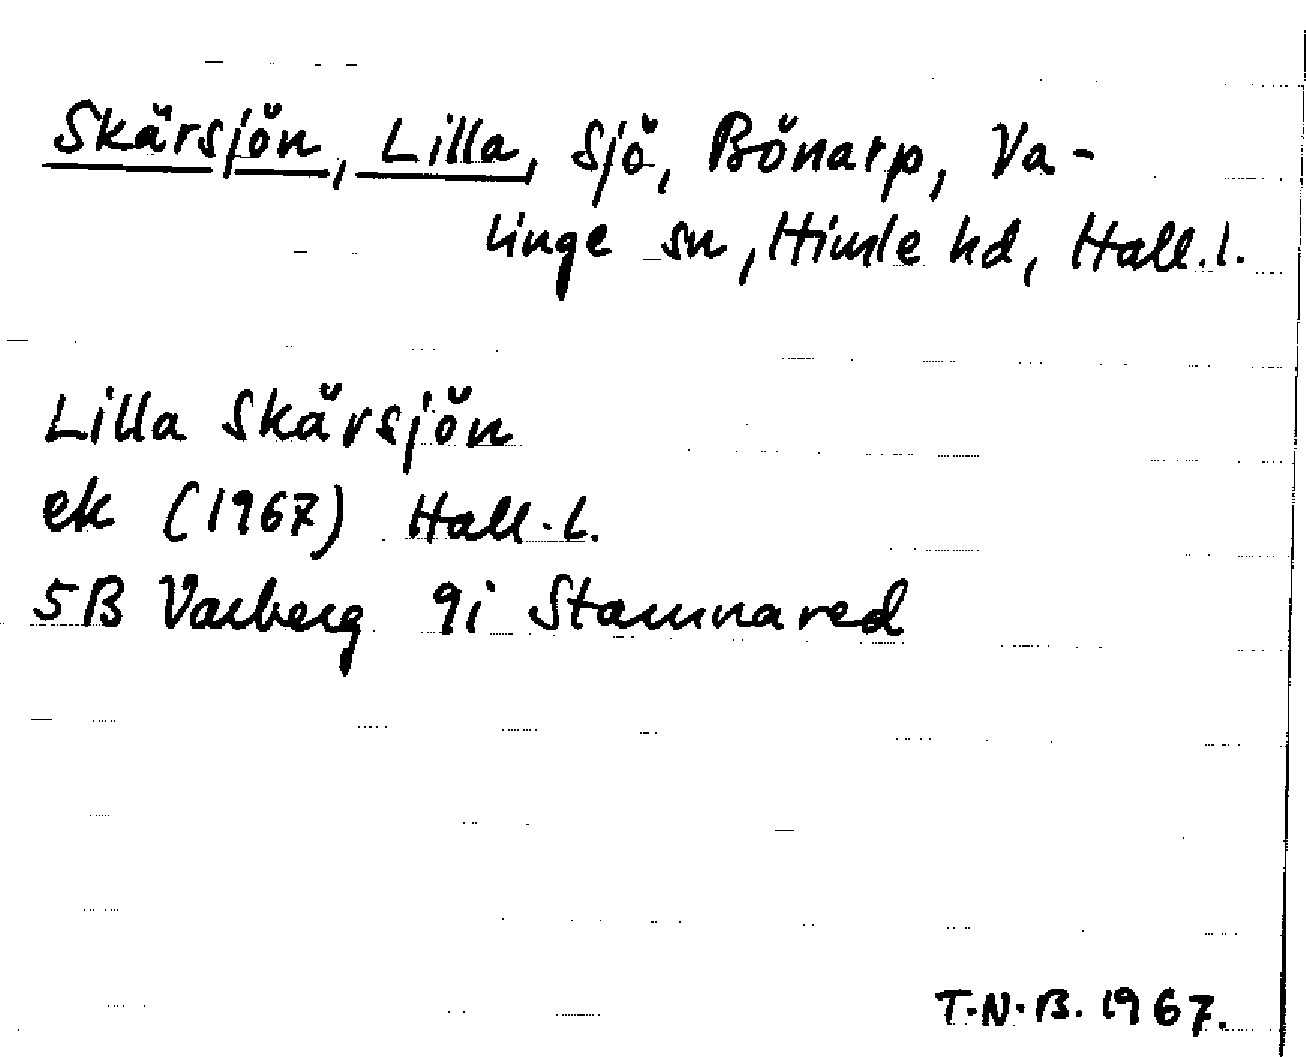 Skärsjön, Lilla, sjö, Bönarp, Va-
linge sn, Himle hd, Hall. l.
Lilla Skärsjön
ek (1967) Hall. l.
5B Varberg 9i Stamnared
T.N.B. 1967.